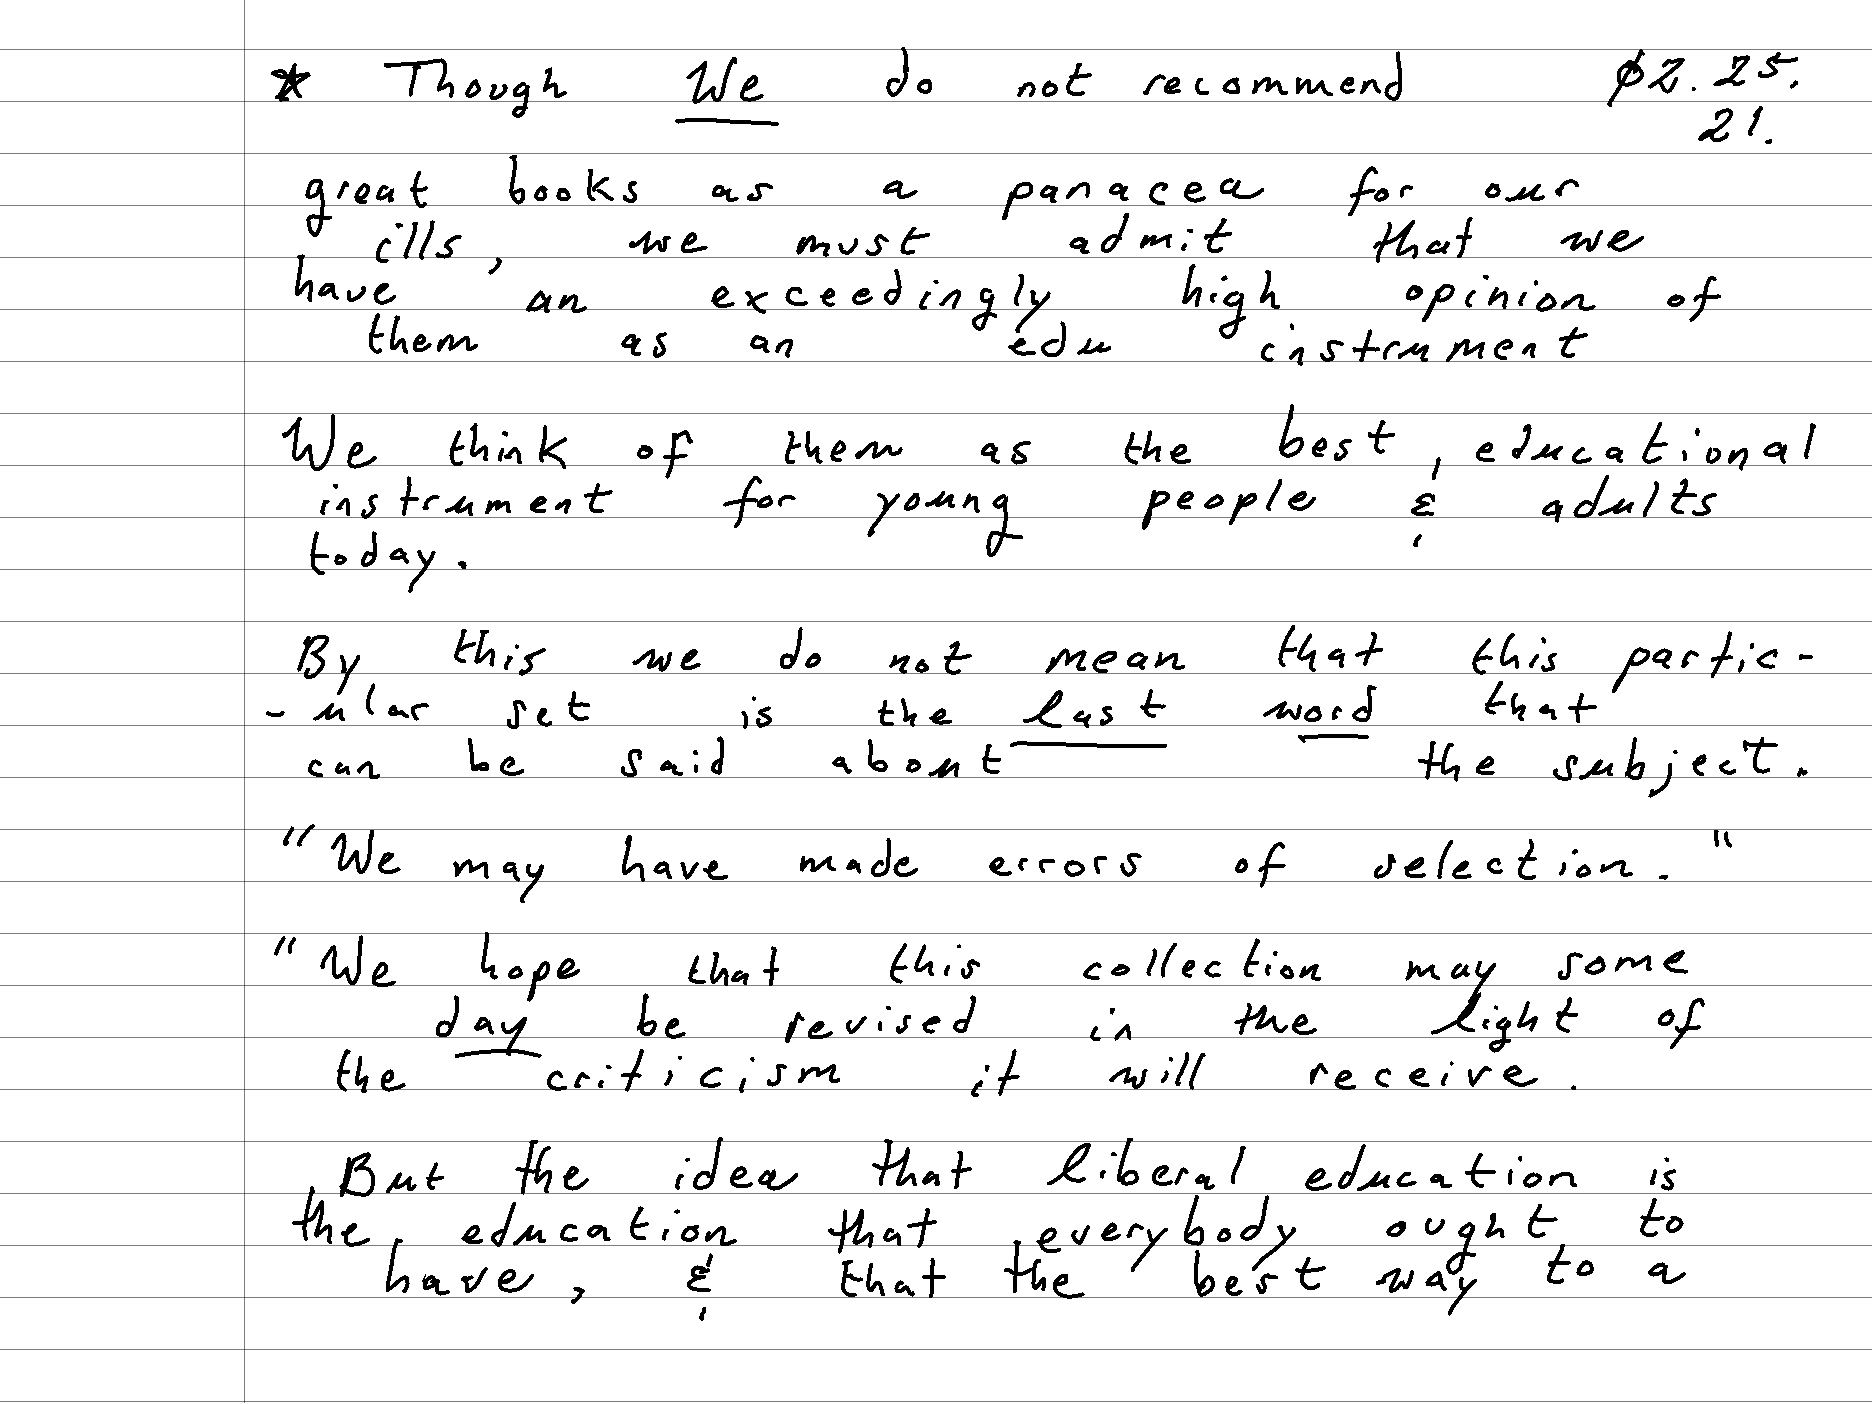 * Though We do not recommend 02.25.
21.
great books as a panacea for our
ills, we must admit that we
have an exceedingly high opinion of
them as an edu instrument
We think of them as the best, educational
instrument for young people & adults
today.
By this we do not mean that this partic-
-ular set is the last word that
can be said about the subject.
"We may have made errors of selection."
"We hope that this collection may some
day be revised in the light of
the criticism it will receive.
But the idea that liberal education is
the education that everybody ought to
have, & that the best way to a